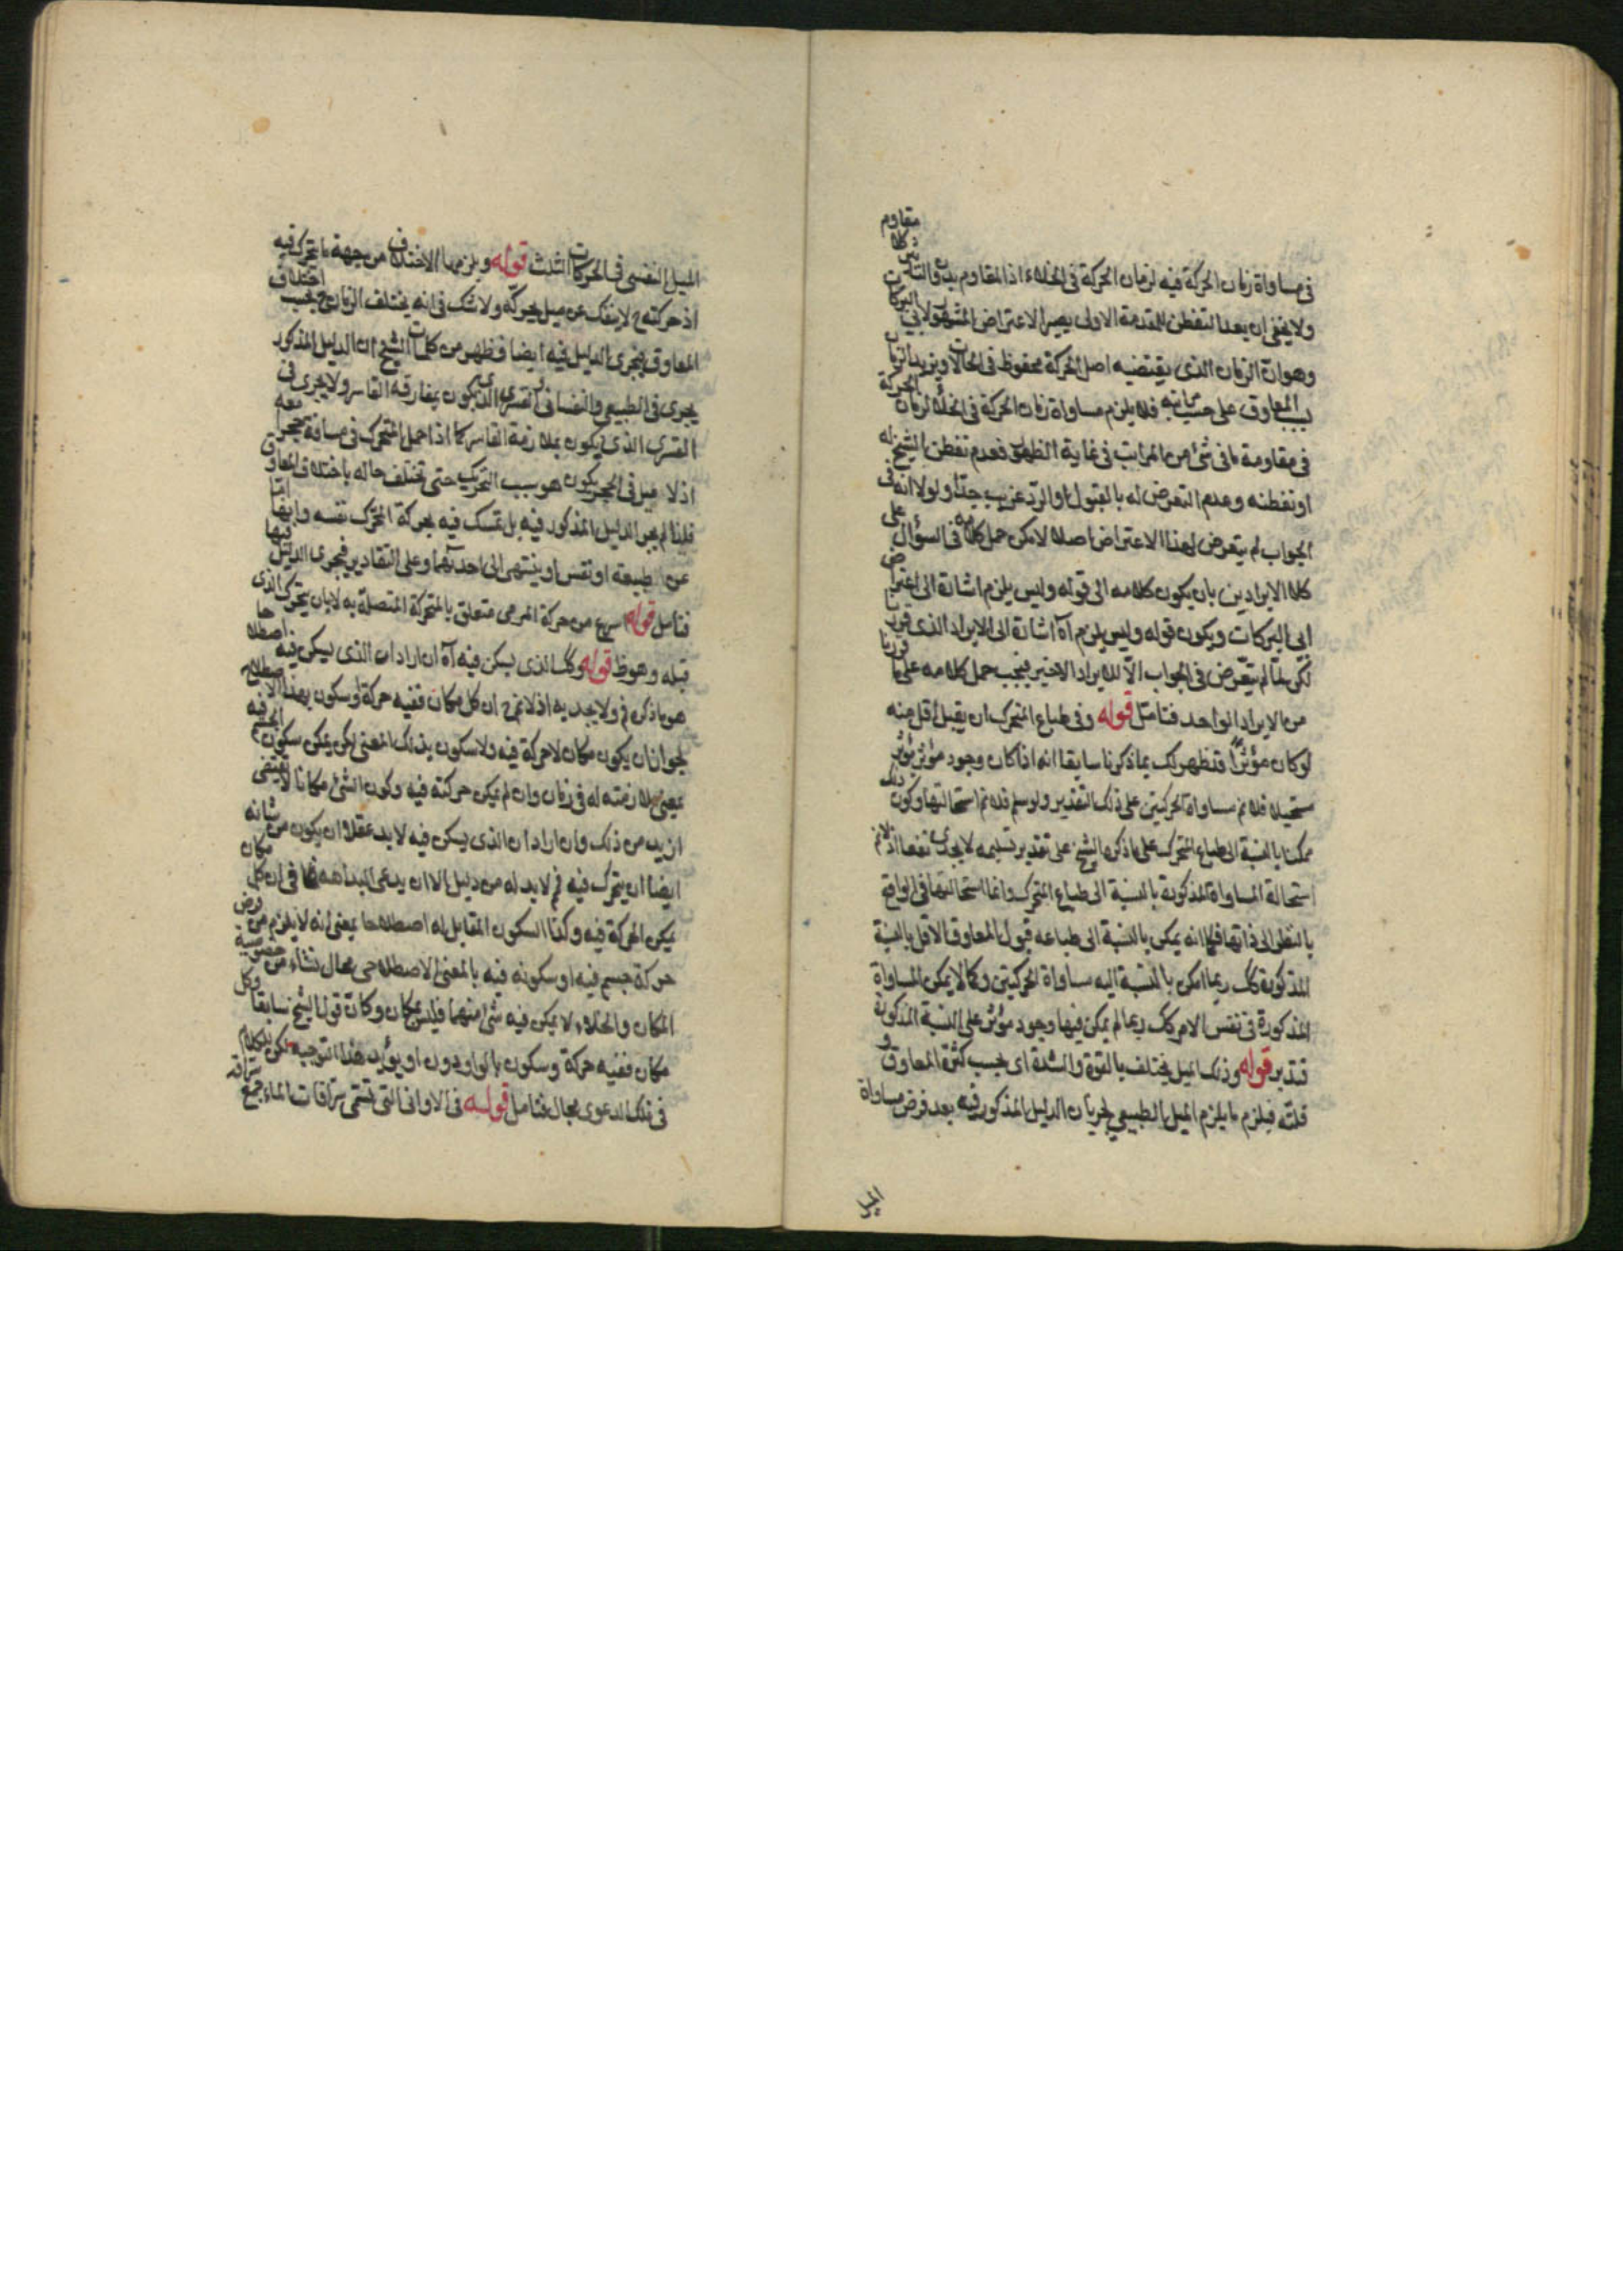 في مساواة زمان الحركة فيه لزمان الحركة في الخلاء اذ المقاوم بدون التأثير كلا مقاوم
ولا يخفى ان بعد التفطن للمقدمة الاولى يصير الاعتراض المشهور لابي البركات
وهو ان الزمان الذي يقتضيه اصل الحركة محفوظ في الحالات ويزيد الزمان
بسبب المعاوق على حسب مراتبه فلا يلزم مساواة زمان الحركة في الخلأ لزمان الحركة
في مقاومة ما في شئ من المراتب في غاية الظهور فعدم تفطن الشيخ له
او تفطنه وعدم التعرض له بالقبول او الرد غريب جدّاً ولولا انه في
الجواب لم يتعرض لهذا الاعتراض اصلا لامكن حمل كلامه في السؤال على
كلا الايرادين بان يكون كلامه الى قوله وليس يلزم اشارة الى اعتراض
ابي البركات ويكون قوله وليس يلزم آه اشارة الى الايراد الذي قررنا
لكن لمّا لم يتعرّض في الجواب الّا للايراد الاخير فيجب حمل كلامه على ما قررنا
من الايراد الواحد فتامّل قوله وفي طباع المتحرك ان يقبل اقل منه
لو كان مؤثراً قد ظهر لك بما ذكرنا سابقا انه اذا كان وجود مؤثر يؤثر
مستحيلا فلا نم مساواة الحركتين على ذلك التقدير ولو سلم فلا نم استحالتها وكون ذلك
ممكنا بالنسبة الى طباع المتحرك على ما ذكره الشيخ على تقدير تسليمه لا يجدي نفعا اذ لا نم
استحالة المساواة المذكورة بالنسبة الى طباع المتحرك وانما استحالتها في الواقع
بالنظر الى ذاتها فكما انه يمكن بالنسبة الى طباعه قبول المعاوق الاقل بالنسبة
المذكورة كك ربما امكن بالنسبة اليه مساواة الحركتين وكما لا يمكن المساواة
المذكورة في نفس الامر كك ربما لم يمكن فيها وجود مؤثر على النسبة المذكورة
فتدبر قوله وذلك الميل يختلف بالقوة والشدة اي بحسب كثرة المعاوق و
قلته فيلزم ما يلزم الميل الطبيعي لجريان الدليل المذكور فيه بعد فرض مساواة
الميل النفسي في الحركات الثلث قوله ويلزمها الاختلاف من جهة ما يتحرك فيه
اذ حركته ح لا ينفك عن ميل يحركه ولا شك في انه يختلف الزمان ح بحسب اختلاف
المعاوق فيجرى الدليل فيه ايضا فظهر من كلمات الشيخ ان الدليل المذكور
يجري في الطبيعي والنفساني والقسري الذي يكون بمفارقة القاسر ولا يجري في
القسري الذي يكون بملازمة القاسر كما اذا حمل المتحرك في مسافة معه حجرا
اذ لا ميل في الحجر يكون هو سبب التحريك حتى تختلف حاله باختلاف المعاوق
قلنا لم يجر الدليل المذكور فيه بل يتمسك فيه بحركة المحرك نفسه وانها امّا
عن طبيعة او نفس او ينتهي الى احدهما وعلى التقادير فيجري الدليل فيها
فتامل قوله اسرع من حركة المرمى متعلق بالمتحركة المتصلة به لا بان يتحرك الذي
قبله وهو ظ قوله وكك الذي يسكن فيه آه ان اراد ان الذي يسكن فيه اصطلاحا
هو ما ذكر فم ولا يجديه اذ لا نم ح ان كل مكان ففيه حركة او سكون بهذا الاصطلاح
لجواز ان يكون مكان لا حركة فيه ولا سكون بذلك المعنى لكن يمكن سكون الجسم فيه
بمعنى ملازمته له في زمان وان لم يمكن حركته فيه وكون الشئ مكانا لا يقتضي
ازيد من ذلك وان اراد ان الذي يسكن فيه لا بد عقلا ان يكون من شانه
ايضا ان يتحرك فيه فم لا بد له من دليل الا ان يدعى البداهة في ان كل مكان
يمكن الحركة فيه وكذا السكون المقابل له اصطلاحا بمعنى انه لا يلزم من فرض
حركة جسم فيه او سكونه فيه بالمعنى الاصطلاحي محال نشاء من خصوصية
المكان والخلاء لا يمكن فيه شئ منهما فليس بمكان وكانّ قول الشيخ سابقا وكل
مكان ففيه حركة وسكون بالواو دون او يؤيد هذا التوجيه لكن للكلام
في تلك الدعوى مجال فتامل قوله في الاواني التي تسمى سراقات الماء جمع سراقة